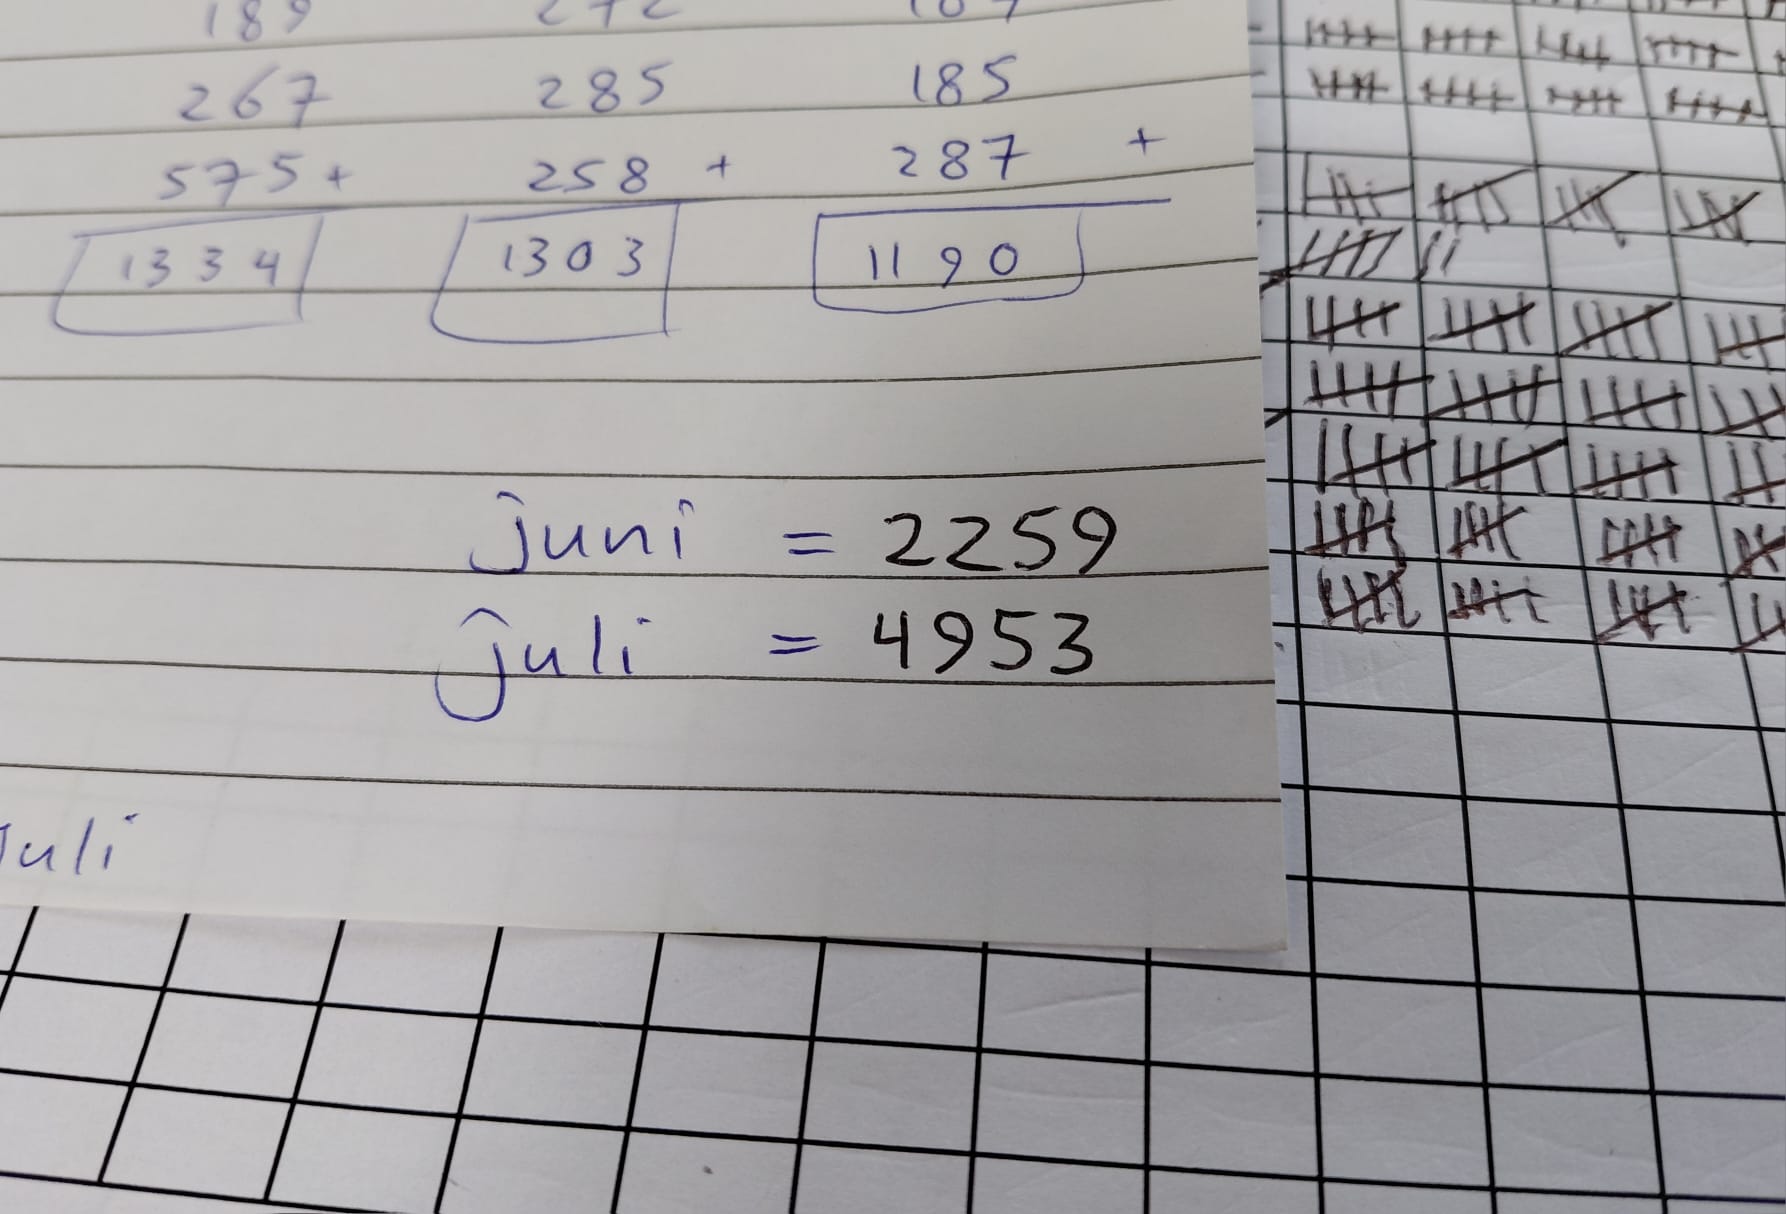 189 272
267 285 185
575 + 258 + 287 +
1334 1303 1190
juni = 2259
juli = 4953
juli